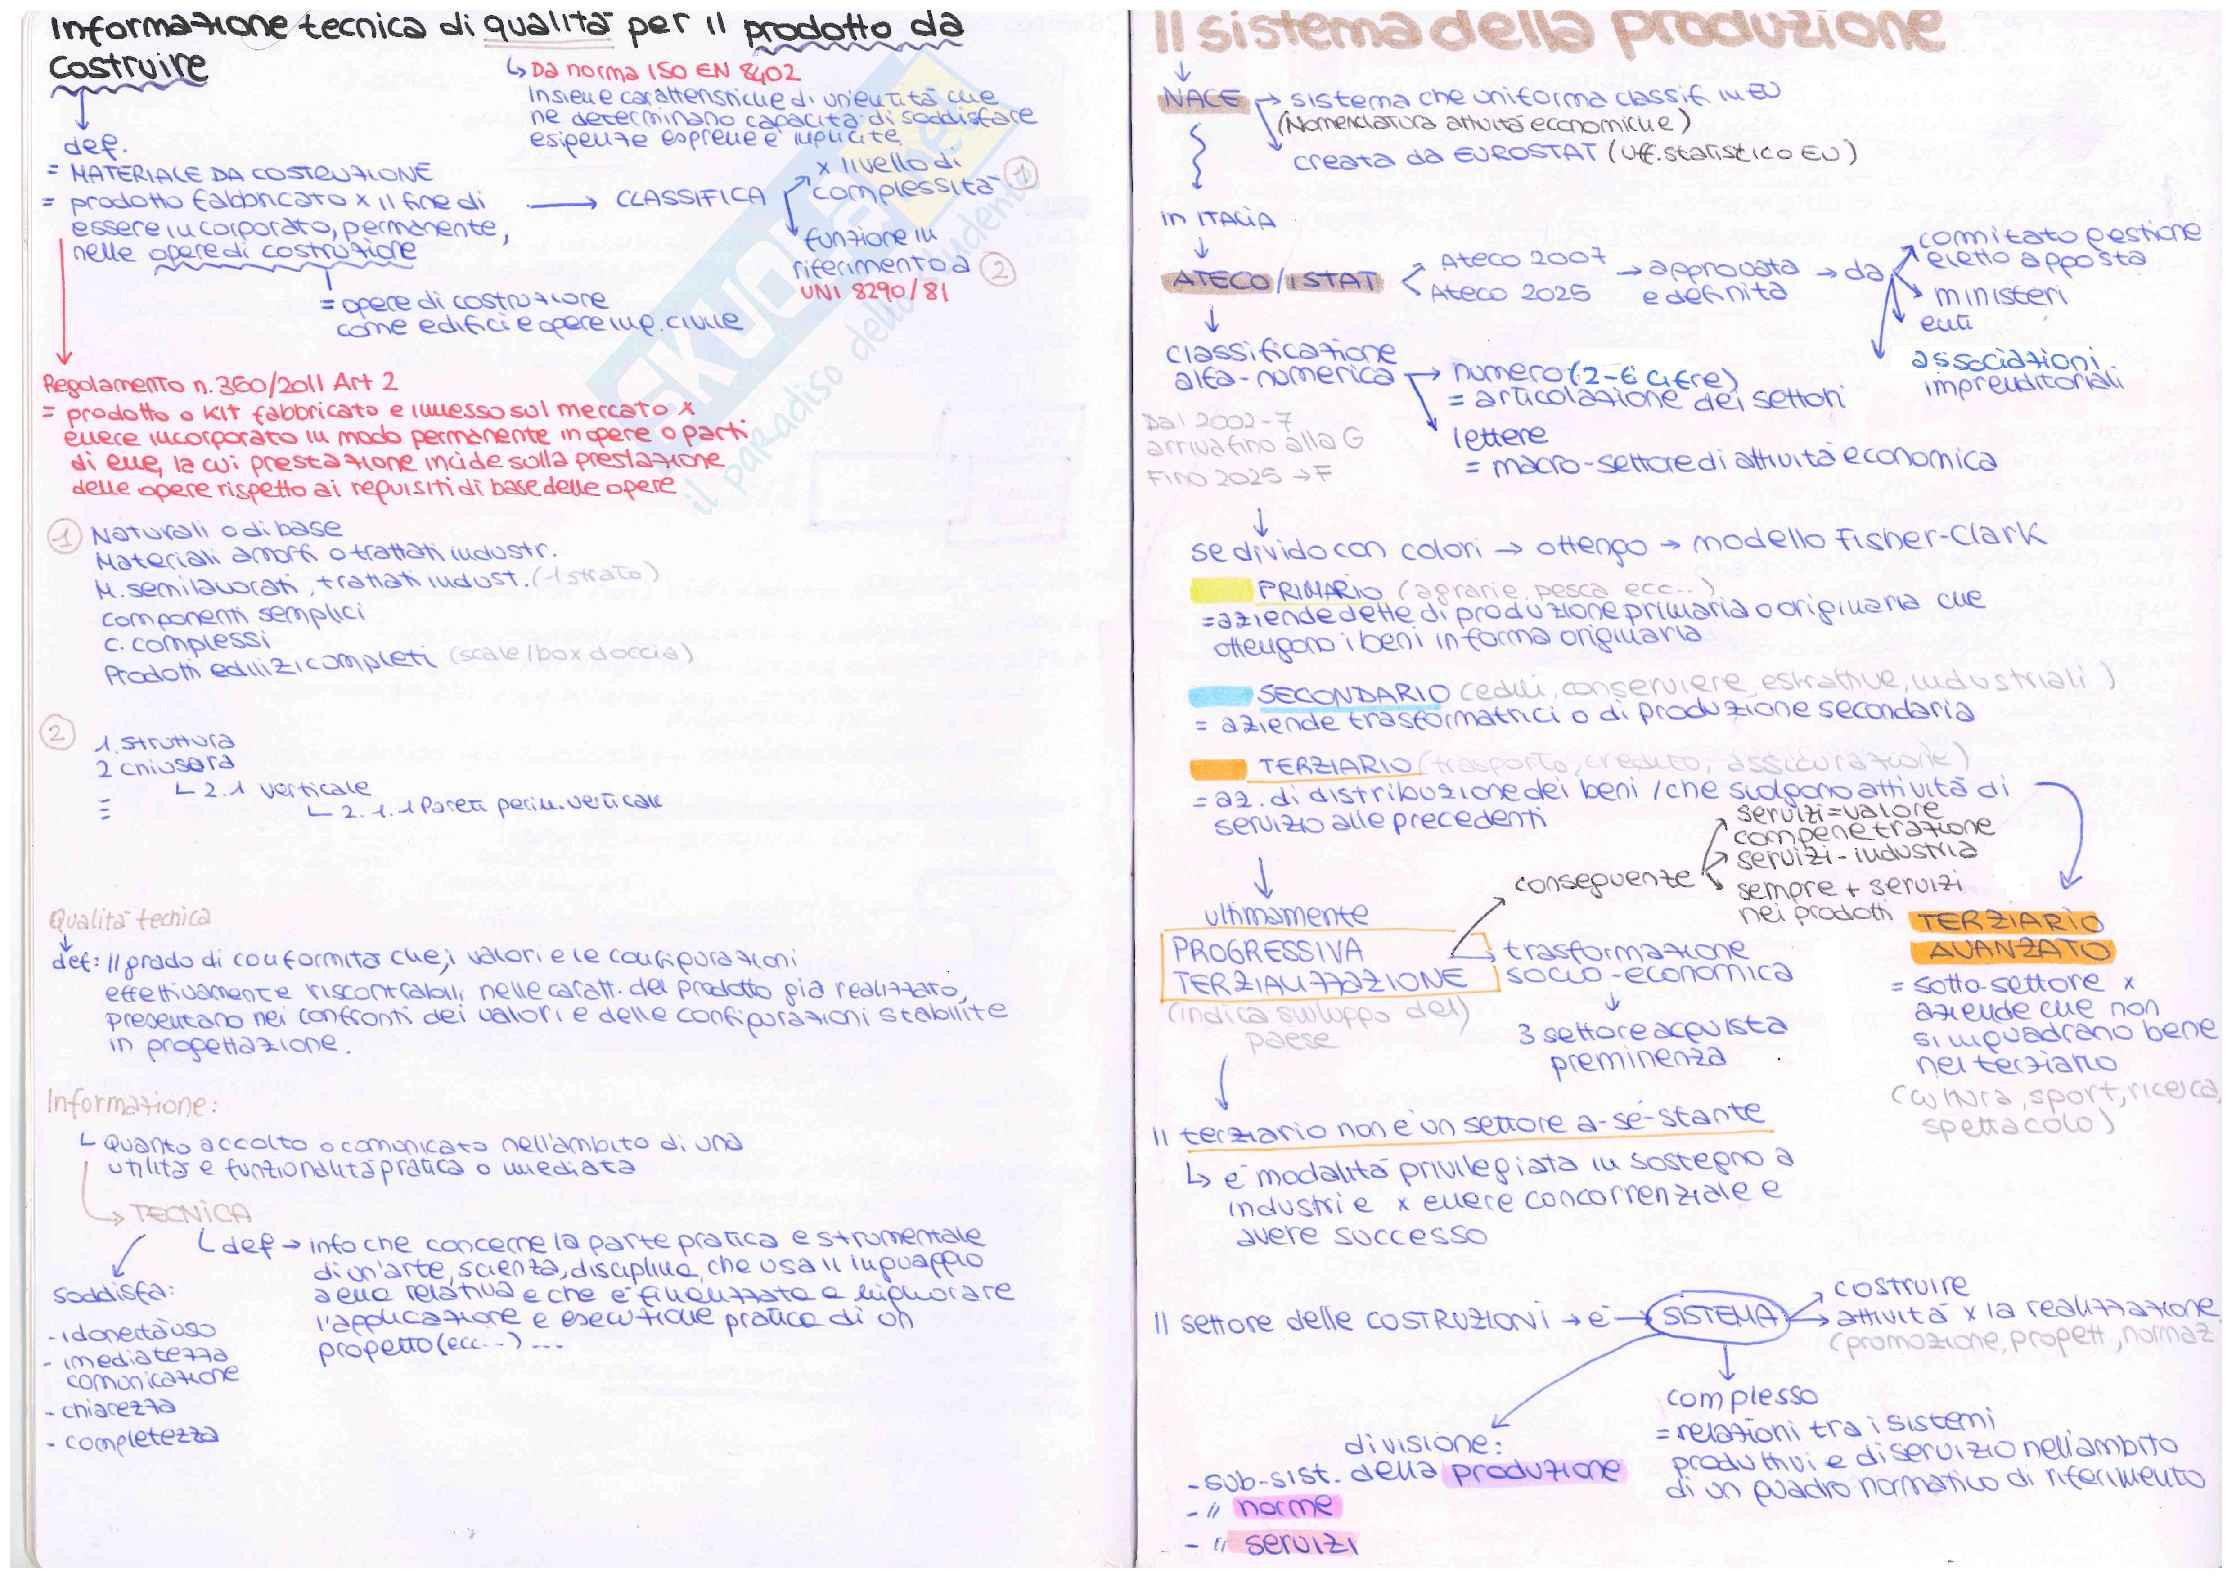 Informazione tecnica di qualità per il prodotto da
costruire
↳ Da norma ISO EN 8402
Insieme caratteristiche di un'entità che
ne determinano capacità di soddisfare
esigenze espresse e implicite
def.
= MATERIALE DA COSTRUZIONE
= prodotto fabbricato x il fine di
essere incorporato, permanente,
nelle opere di costruzione
→ CLASSIFICA
x livello di
complessità 1
funzione in
riferimento a 2
UNI 8290/81
= opere di costruzione
come edifici e opere ing. civile
Regolamento n. 360/2011 Art 2
= prodotto o kit fabbricato e immesso sul mercato x
essere incorporato in modo permanente in opere o parti
di esse, la cui prestazione incide sulla prestazione
delle opere rispetto ai requisiti di base delle opere
1 Naturali o di base
Materiali amorfi o trattati industr.
M. semilavorati, trattati indust. (-1 strato)
componenti semplici
c. complessi
Prodotti edilizi completi (scale/box doccia)
2 1. struttura
2 chiusura
↳ 2.1 verticale
↳ 2.1.1 Pareti perim. verticale
Qualità tecnica
def: Il grado di conformità che, i valori e le configurazioni
effettivamente riscontrabili, nelle caratt. del prodotto già realizzato,
presentano nei confronti dei valori e delle configurazioni stabilite
in progettazione.
Informazione:
↳ Quanto accolto o comunicato nell'ambito di una
utilità e funzionalità pratica o imediata
→ TECNICA
↳ def → info che concerne la parte pratica e strumentale
di un'arte, scienza, disciplina, che usa il linguaggio
a essa relativa e che è finalizzata a migliorare
l'applicazione e esecuzione pratica di un
progetto (ecc...) ...
Soddisfa:
- idoneità uso
- imediatezza
comunicazione
- chiarezza
- completezza
SKUOLA.net
il paradiso dello studente
Il sistema della produzione
NACE → sistema che uniforma classif in EU
(Nomenclatura attività economiche)
creata da EUROSTAT (uff. statistico EU)
in ITALIA
ATECO/ISTAT
Ateco 2007
Ateco 2025
→ approvata
e definita
→ da
comitato gestione
eletto apposta
ministeri
enti
associazioni
imprenditoriali
classificazione
alfa-numerica
→ numero (2-6 cifre)
= articolazione dei settori
lettere
= macro-settore di attività economica
Dal 2002-7
arriva fino alla G
Fino 2025 → F
se divido con colori → ottengo → modello Fisher-Clark
PRIMARIO (agrarie, pesca ecc...)
= aziende dette di produzione primaria o originaria che
ottengono i beni in forma originaria
SECONDARIO (edili, conserviere, estrattive, industriali)
= aziende trasformatrici o di produzione secondaria
TERZIARIO (trasporto, credito, assicurazione)
= az. di distribuzione dei beni / che svolgono attività di
servizio alle precedenti
conseguenze
servizi = valore
compenetrazione
servizi - industria
sempre + servizi
nei prodotti
ultimamente
PROGRESSIVA
TERZIALIZZAZIONE
(indica sviluppo del)
paese
trasformazione
socio-economica
3 settore acquista
preminenza
TERZIARIO
AVANZATO
= sotto-settore x
aziende che non
si inquadrano bene
nel terziario
(cultura, sport, ricerca,
spettacolo)
Il terziario non è un settore a-sé-stante
↳ è modalità privilegiata in sostegno a
industrie x essere concorrenziale e
avere successo
Il settore delle COSTRUZIONI → è → SISTEMA
costruire
attività x la realizzazione
(promozione, progett, normaz
complesso
= relazioni tra i sistemi
produttivi e di servizio nell'ambito
di un quadro normatico di riferimento
divisione:
- sub-sist. della produzione
- " norme
- " servizi